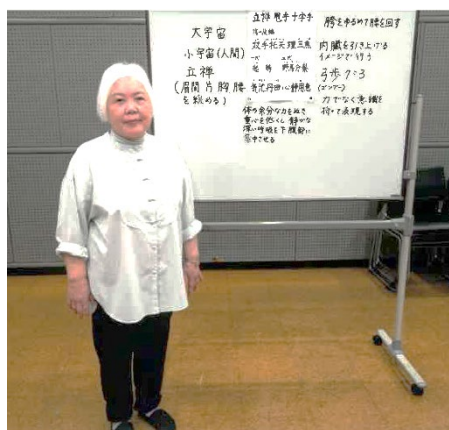 大宇宙
小宇宙(人間)
立禅
(眉間 片 胸 腰
を緩める)
立禅 甩手 十字手
双手托天理三焦
起勢 野馬分鬃
気沈丹田 心静用意
体の余分な力をぬき
重心を低くし 静かな
深い呼吸を下腹部に
集中させる
腰をゆるめて腰を回す
内臓を引き上げる
イメージで行う
弓歩 7:3
力でなく意識を
持って表現する